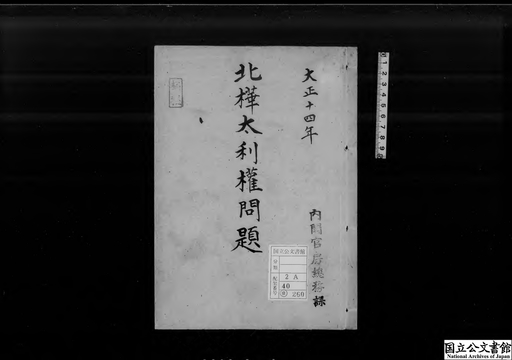 大正十四年
北樺太利權問題
内閣官房總務課
国立公文書館
2 A
40
260
国立公文書館
National Archives of Japan